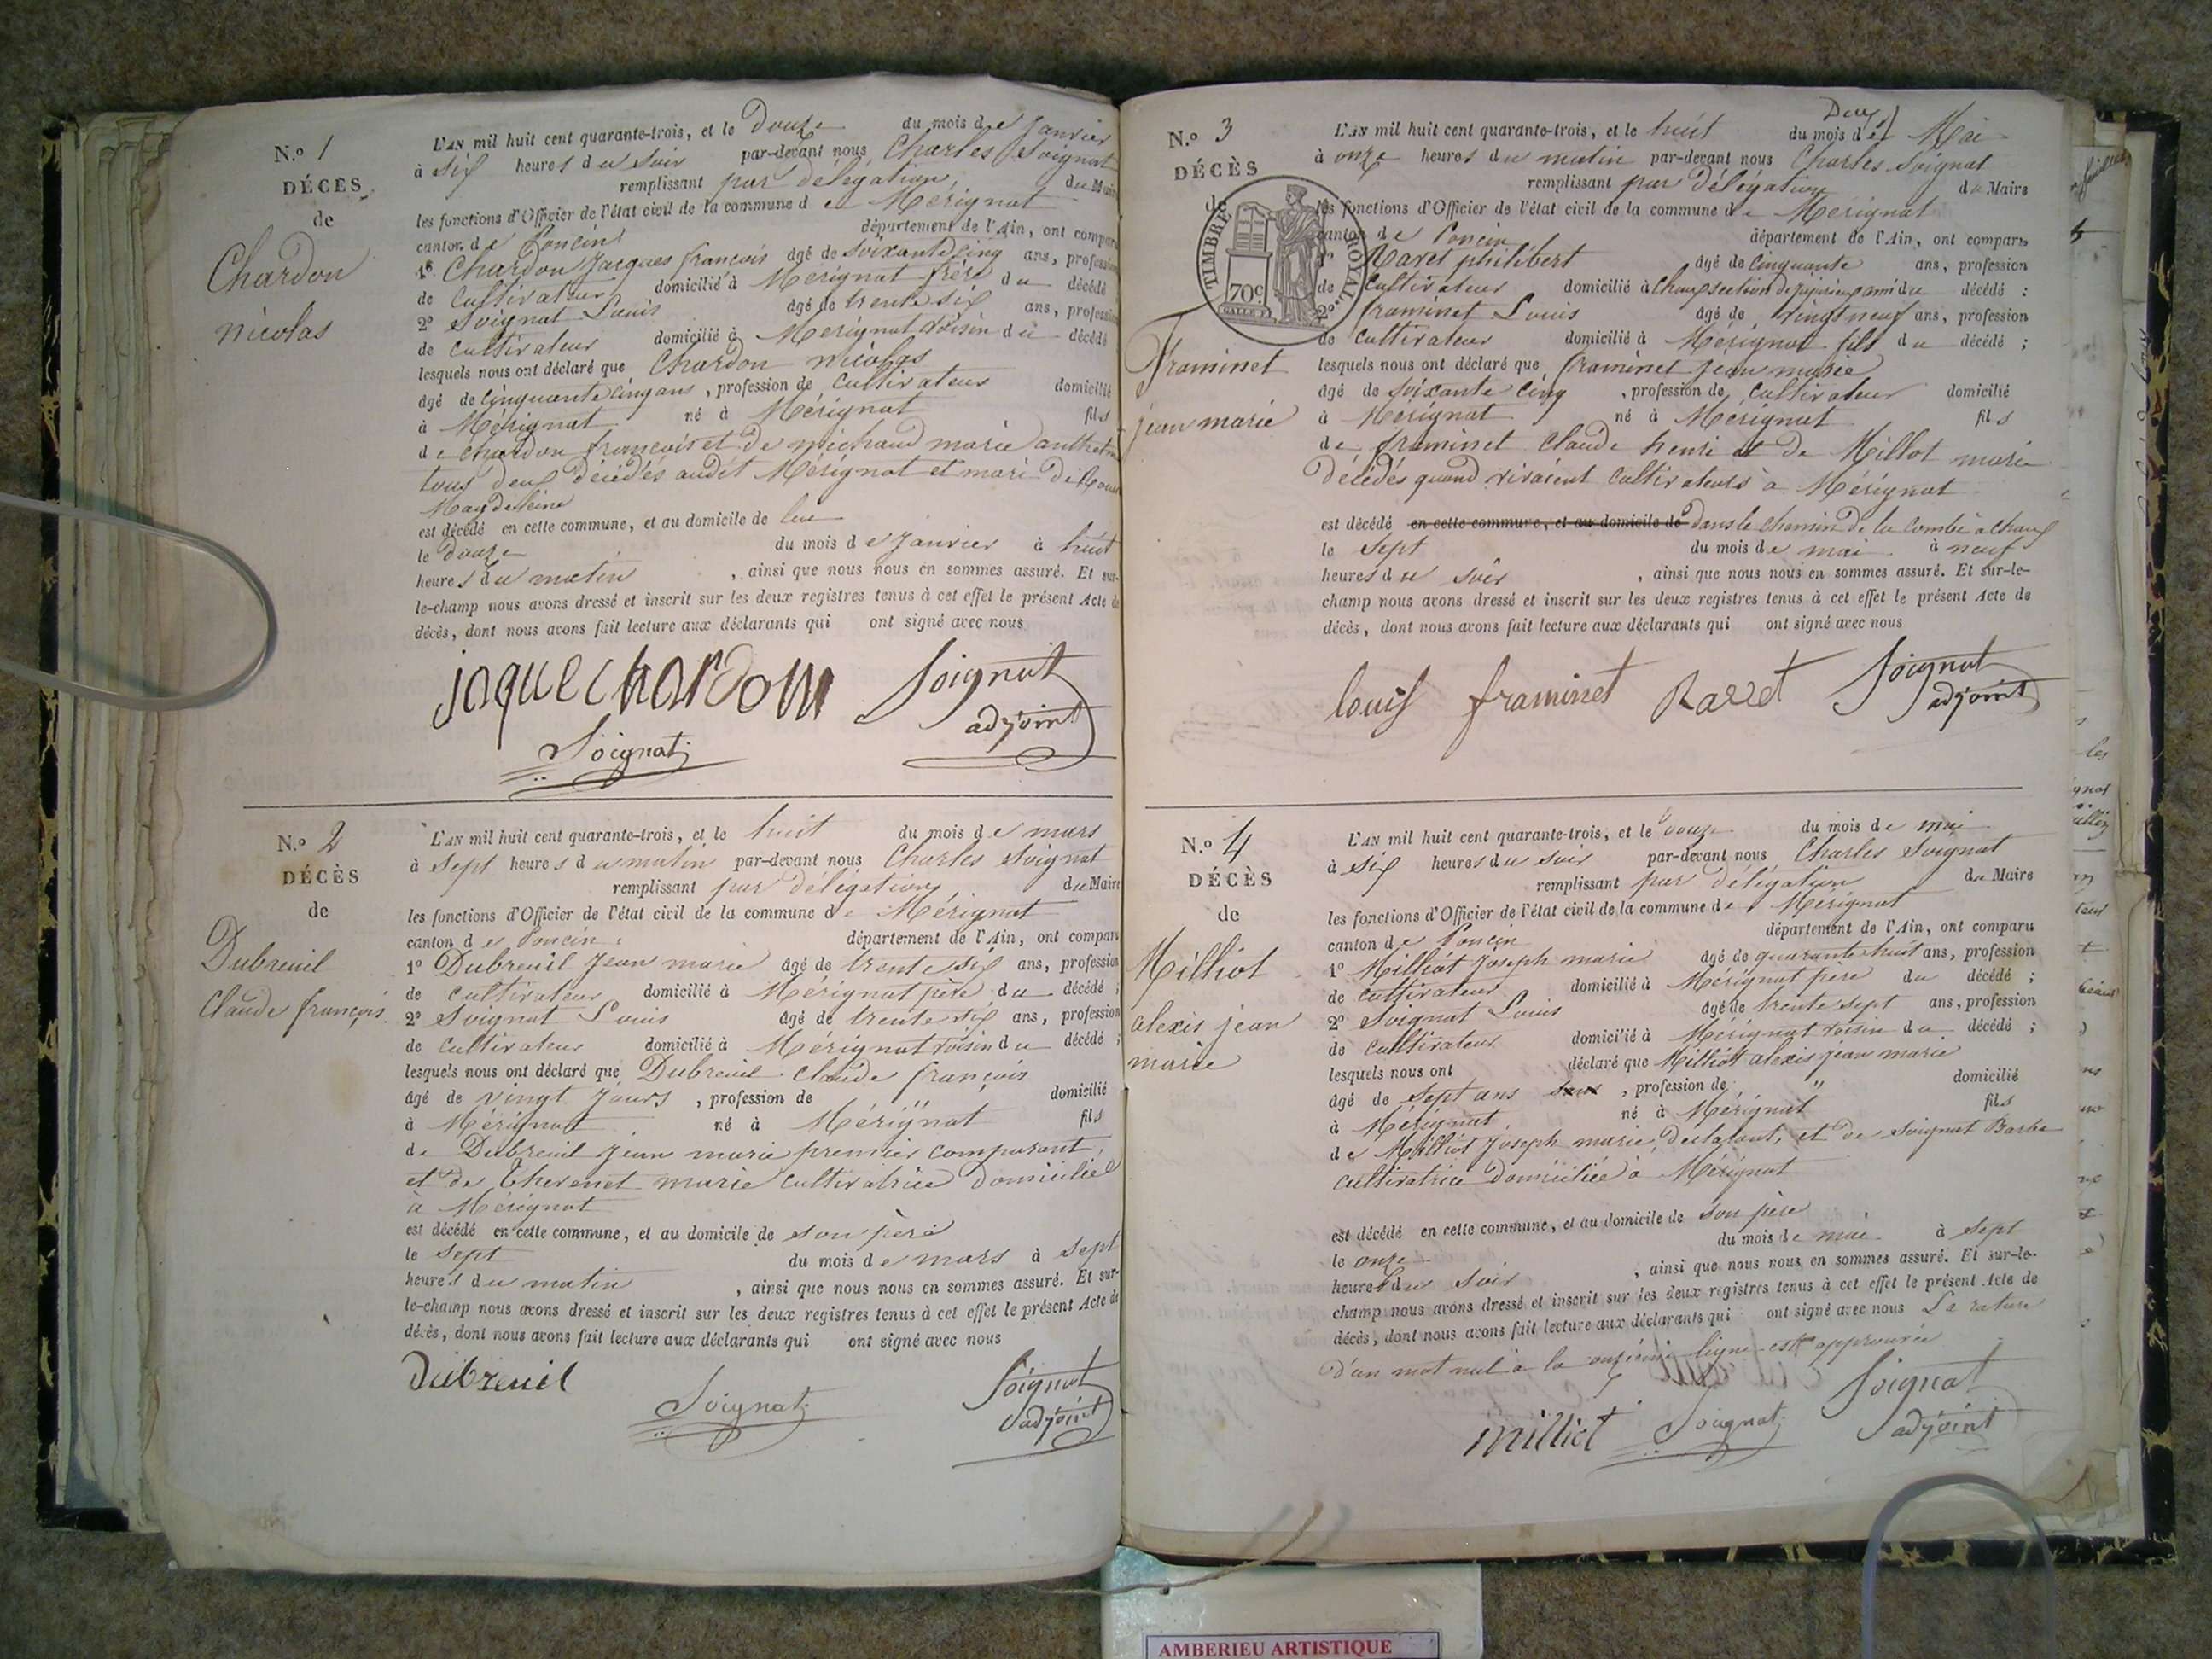 N.o 1
DÉCÈS
de
Chardon
nicolas
L'AN mil huit cent quarante-trois, et le Douze du mois de Janvier
à six heures du soir par-devant nous Charles Soignat
remplissant par délégation du Maire
les fonctions d'Officier de l'état civil de la commune de Mérignat
canton de Poncin département de l'Ain, ont comparu
1o Chardon Jacques françois âgé de soixante cinq ans, profession
de cultivateur domicilié à Mérignat frère du décédé
2o Soignat Louis âgé de trente six ans, profession
de cultivateur domicilié à Mérignat voisin du décédé
lesquels nous ont déclaré que Chardon nicolas
âgé de cinquante cinq ans, profession de cultivateur domicilié
à Mérignat né à Mérignat fils
de chardon françois et de michaud marie anthelm
tous deux décédés audit Mérignat et mari de
Magdeleine
est décédé en cette commune, et au domicile de
le douze du mois de Janvier à huit
heures du matin, ainsi que nous nous en sommes assuré. Et sur-
le-champ nous avons dressé et inscrit sur les deux registres tenus à cet effet le présent Acte de
décès, dont nous avons fait lecture aux déclarants qui ont signé avec nous
jaque chardon Soignat
adjoint
Soignat
N.o 2
DÉCÈS
de
Dubreuil
Claude françois
L'AN mil huit cent quarante-trois, et le huit du mois de mars
à sept heures du matin par-devant nous Charles Soignat
remplissant par délégation du Maire
les fonctions d'Officier de l'état civil de la commune de Mérignat
canton de Poncin département de l'Ain, ont comparu
1o Dubreuil Jean marie âgé de trente six ans, profession
de cultivateur domicilié à Mérignat père du décédé ;
2o Soignat Louis âgé de trente six ans, profession
de cultivateur domicilié à Mérignat voisin du décédé ;
lesquels nous ont déclaré que Dubreuil Claude françois
âgé de vingt jours, profession de " domicilié
à Mérignat né à Mérignat fils
de Dubreuil Jean marie premier comparant,
et de Thevenet marie cultivatrice domiciliée
à Mérignat
est décédé en cette commune, et au domicile de son père
le sept du mois de mars à sept
heures du matin, ainsi que nous nous en sommes assuré. Et sur-
le-champ nous avons dressé et inscrit sur les deux registres tenus à cet effet le présent Acte de
décès, dont nous avons fait lecture aux déclarants qui ont signé avec nous
Dubreuil Soignat Soignat
adjoint
N.o 3
DÉCÈS
de
TIMBRE ROYAL
70c
Framinet
jean marie
Deux
L'AN mil huit cent quarante-trois, et le huit du mois de Mai
à onze heures du matin par-devant nous Charles Soignat
remplissant par Délégation du Maire
les fonctions d'Officier de l'état civil de la commune de Mérignat
canton de Poncin département de l'Ain, ont comparu
1o Ravet philibert âgé de cinquante ans, profession
de cultivateur domicilié à Chaux section de ami du décédé ;
2o framinet Louis âgé de vingt neuf ans, profession
de cultivateur domicilié à Mérignat fils du décédé ;
lesquels nous ont déclaré que framinet jean marie
âgé de soixante cinq, profession de cultivateur domicilié
à Mérignat né à Mérignat fils
de framinet Claude henri et de Millot marie
Décédés quand vivaient cultivateurs à Mérignat
est décédé en cette commune, et au domicile de Dans le chemin De la Combe à Chaux
le sept du mois de mai à neuf
heures du soir, ainsi que nous nous en sommes assuré. Et sur-le-
champ nous avons dressé et inscrit sur les deux registres tenus à cet effet le présent Acte de
décès, dont nous avons fait lecture aux déclarants qui ont signé avec nous
louis framinet Ravet Soignat
adjoint
N.o 4
DÉCÈS
de
Milliot
alexis jean
marie
L'AN mil huit cent quarante-trois, et le douze du mois de mai
à six heures du soir par-devant nous Charles Soignat
remplissant par délégation du Maire
les fonctions d'Officier de l'état civil de la commune de Mérignat
canton de Poncin département de l'Ain, ont comparu
1o Milliot Joseph marie âgé de quarante huit ans, profession
de cultivateur domicilié à Mérignat père du décédé ;
2o Soignat Louis âgé de trente sept ans, profession
de cultivateur domicilié à Mérignat voisin du décédé ;
lesquels nous ont déclaré que Milliot alexis jean marie
âgé de sept ans, profession de " domicilié
à Mérignat né à Mérignat fils
de Milliot Joseph marie, déclarant, et de Soignat Barbe
cultivatrice domiciliée à Mérignat
est décédé en cette commune, et au domicile de son père
le onze du mois de mai à sept
heures du soir, ainsi que nous nous en sommes assuré. Et sur-le-
champ nous avons dressé et inscrit sur les deux registres tenus à cet effet le présent Acte de
décès, dont nous avons fait lecture aux déclarants qui ont signé avec nous La rature
D'un mot nul à la onzième ligne est approuvée
milliot Soignat Soignat
adjoint
AMBERIEU ARTISTIQUE